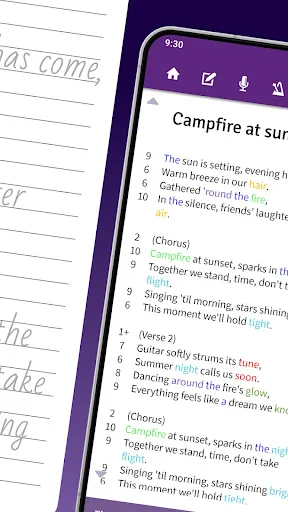 has come,
ter
the
take
ng
9:30
Campfire at sun
9 The sun is setting, evening h
6 Warm breeze in our hair.
6 Gathered 'round the fire,
10 In the silence, friends' laughte
air.
2 (Chorus)
10 Campfire at sunset, sparks in the n
9 Together we stand, time, don't t
flight.
9 Singing 'til morning, stars shining
6 This moment we'll hold tight.
1+ (Verse 2)
7 Guitar softly strums its tune,
6 Summer night calls us soon.
8 Dancing around the fire's glow,
9 Everything feels like a dream we kno
2 (Chorus)
10 Campfire at sunset, sparks in the nig
9 Together we stand, time, don't take
flight.
9 Singing 'til morning, stars shining brigh
6 This moment we'll hold tight.